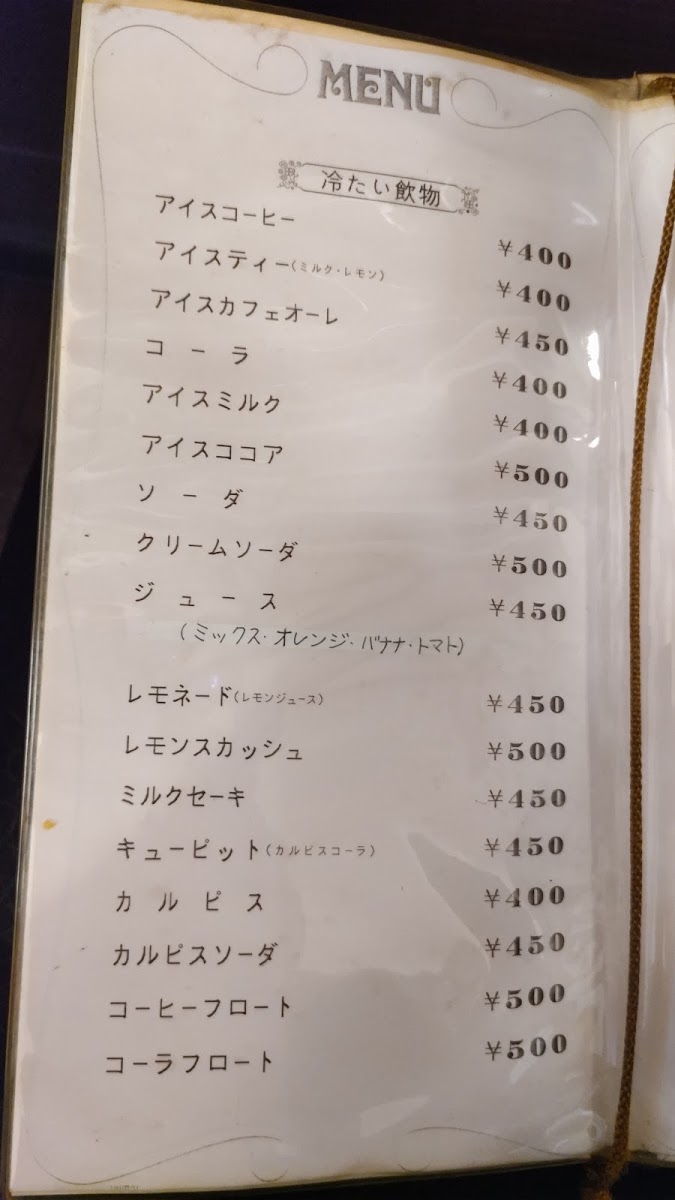 MENU
冷たい飲物
アイスコーヒー ¥400
アイスティー(ミルク・レモン) ¥400
アイスカフェオーレ ¥450
コーラ ¥400
アイスミルク ¥400
アイスココア ¥500
ソーダ ¥450
クリームソーダ ¥500
ジュース ¥450
(ミックス・オレンジ・バナナ・トマト)
レモネード(レモンジュース) ¥450
レモンスカッシュ ¥500
ミルクセーキ ¥450
キューピット(カルピスコーラ) ¥450
カルピス ¥400
カルピスソーダ ¥450
コーヒーフロート ¥500
コーラフロート ¥500